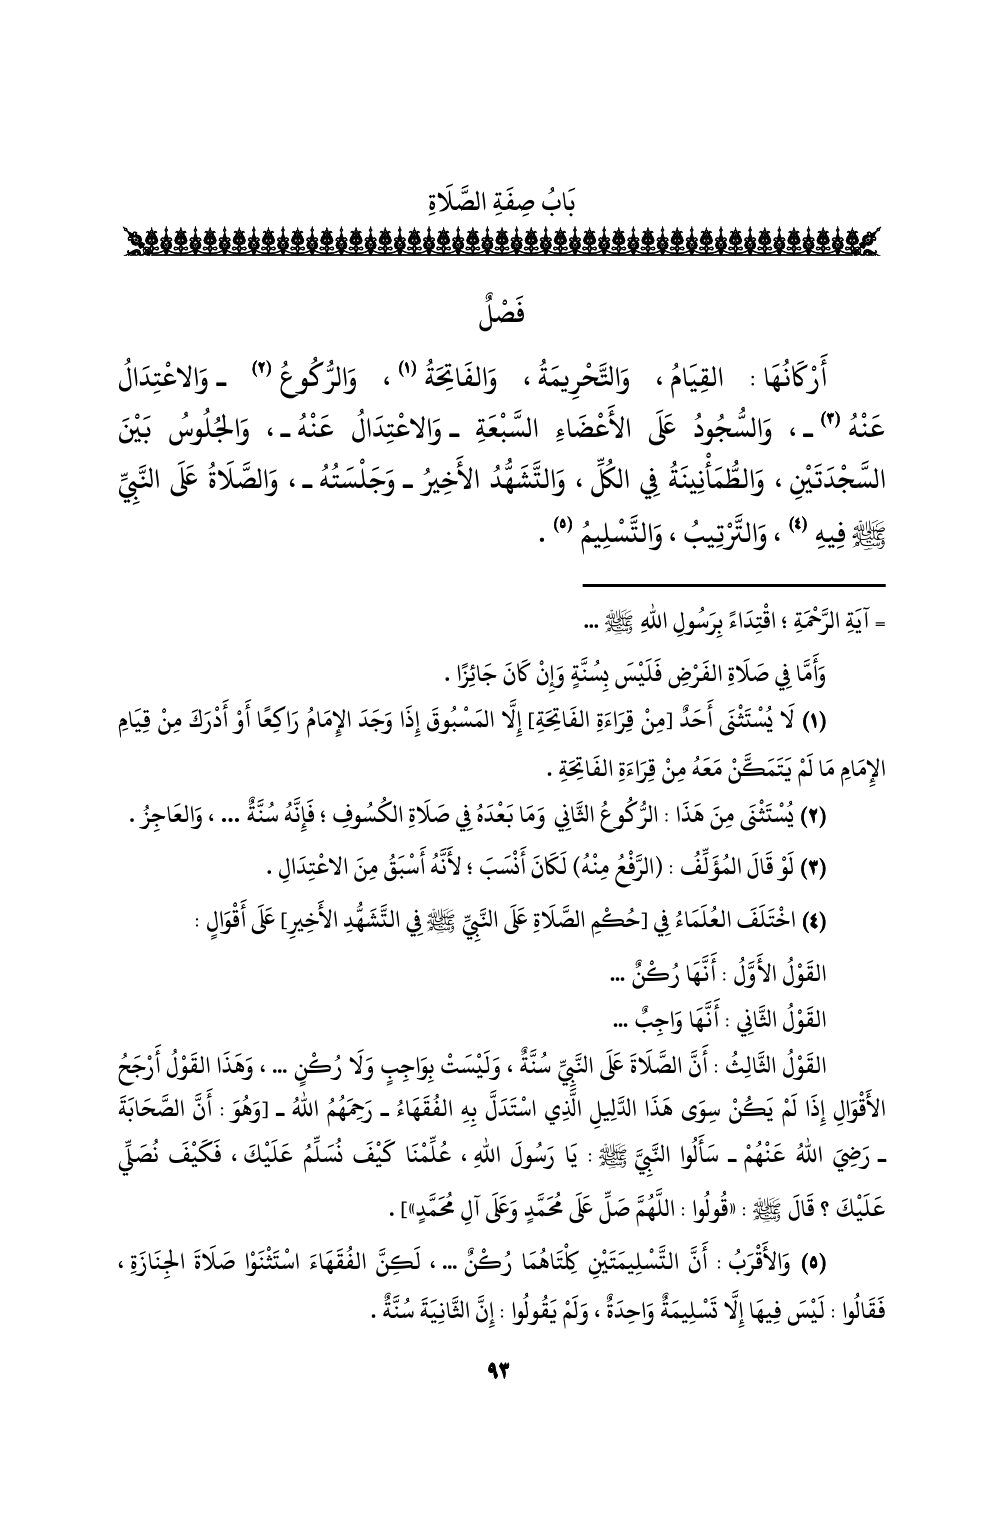 بَابُ صِفَةِ الصَّلَاةِ
فَصْلٌ
أَرْكَانُهَا : القِيَامُ ، وَالتَّحْرِيمَةُ ، وَالفَاتِحَةُ (١) ، وَالرُّكُوعُ (٢) ـ وَالاعْتِدَالُ
عَنْهُ (٣) ـ ، وَالسُّجُودُ عَلَى الأَعْضَاءِ السَّبْعَةِ ـ وَالاعْتِدَالُ عَنْهُ ـ ، وَالجُلُوسُ بَيْنَ
السَّجْدَتَيْنِ ، وَالطُّمَأْنِينَةُ فِي الكُلِّ ، وَالتَّشَهُّدُ الأَخِيرُ ـ وَجَلْسَتُهُ ـ ، وَالصَّلَاةُ عَلَى النَّبِيِّ
ﷺ فِيهِ (٤) ، وَالتَّرْتِيبُ ، وَالتَّسْلِيمُ (٥) .
= آيَةِ الرَّحْمَةِ ؛ اقْتِدَاءً بِرَسُولِ اللهِ ﷺ ...
وَأَمَّا فِي صَلَاةِ الفَرْضِ فَلَيْسَ بِسُنَّةٍ وَإِنْ كَانَ جَائِزًا .
(١) لَا يُسْتَثْنَى أَحَدٌ [مِنْ قِرَاءَةِ الفَاتِحَةِ] إِلَّا المَسْبُوقَ إِذَا وَجَدَ الإِمَامُ رَاكِعًا أَوْ أَدْرَكَ مِنْ قِيَامِ
الإِمَامِ مَا لَمْ يَتَمَكَّنْ مَعَهُ مِنْ قِرَاءَةِ الفَاتِحَةِ .
(٢) يُسْتَثْنَى مِنَ هَذَا : الرُّكُوعُ الثَّانِي وَمَا بَعْدَهُ فِي صَلَاةِ الكُسُوفِ ؛ فَإِنَّهُ سُنَّةٌ ... ، وَالعَاجِزُ .
(٣) لَوْ قَالَ المُؤَلِّفُ : (الرَّفْعُ مِنْهُ) لَكَانَ أَنْسَبَ ؛ لأَنَّهُ أَسْبَقُ مِنَ الاعْتِدَالِ .
(٤) اخْتَلَفَ العُلَمَاءُ فِي [حُكْمِ الصَّلَاةِ عَلَى النَّبِيِّ ﷺ فِي التَّشَهُّدِ الأَخِيرِ] عَلَى أَقْوَالٍ :
القَوْلُ الأَوَّلُ : أَنَّهَا رُكْنٌ ...
القَوْلُ الثَّانِي : أَنَّهَا وَاجِبٌ ...
القَوْلُ الثَّالِثُ : أَنَّ الصَّلَاةَ عَلَى النَّبِيِّ سُنَّةٌ ، وَلَيْسَتْ بِوَاجِبٍ وَلَا رُكْنٍ ... ، وَهَذَا القَوْلُ أَرْجَحُ
الأَقْوَالِ إِذَا لَمْ يَكُنْ سِوَى هَذَا الدَّلِيلِ الَّذِي اسْتَدَلَّ بِهِ الفُقَهَاءُ ـ رَحِمَهُمُ اللهُ ـ [وَهُوَ : أَنَّ الصَّحَابَةَ
ـ رَضِيَ اللهُ عَنْهُمْ ـ سَأَلُوا النَّبِيَّ ﷺ : يَا رَسُولَ اللهِ ، عُلِّمْنَا كَيْفَ نُسَلِّمُ عَلَيْكَ ، فَكَيْفَ نُصَلِّي
عَلَيْكَ ؟ قَالَ ﷺ : «قُولُوا : اللَّهُمَّ صَلِّ عَلَى مُحَمَّدٍ وَعَلَى آلِ مُحَمَّدٍ»] .
(٥) وَالأَقْرَبُ : أَنَّ التَّسْلِيمَتَيْنِ كِلْتَاهُمَا رُكْنٌ ... ، لَكِنَّ الفُقَهَاءَ اسْتَثْنَوْا صَلَاةَ الجِنَازَةِ ،
فَقَالُوا : لَيْسَ فِيهَا إِلَّا تَسْلِيمَةٌ وَاحِدَةٌ ، وَلَمْ يَقُولُوا : إِنَّ الثَّانِيَةَ سُنَّةٌ .
٩٣